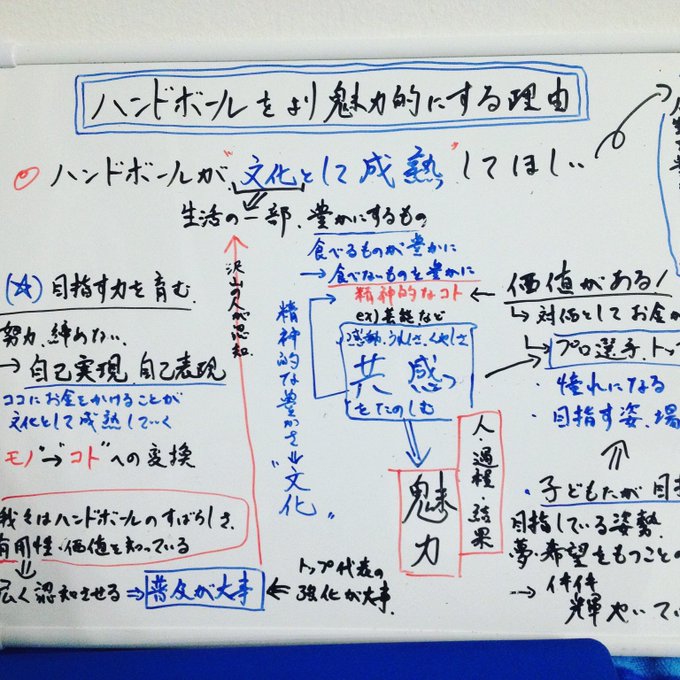 ハンドボールをより魅力的にする理由
ハンドボールが"文化として成熟"してほしい
生活の一部、豊かにするもの
食べるものが豊かに
→食べないものを豊かに
精神的なコト
ex)芸能など
感動、うれしさ、くやしさ
共感
をたのしむ
魅力
人・過程・結果
沢山の人が認知
精神的な豊かさ⇒"文化"
(☆)目指す力を育む
努力、締めない
→自己実現、自己表現
ココにお金をかけることが
文化として成熟していく
"モノ"→"コト"への変換
我々はハンドボールのすばらしさ、
有用性・価値を知っている
広く認知させる⇒普及が大事
←トップ代表の
強化が大事、
価値がある!
↳対価としてお金が
↳プロ選手、トップ
・憧れになる
・目指す姿、場
・子どもたが目
目指している姿勢、
夢・希望をもつことの
→イキイキ
輝やいてい